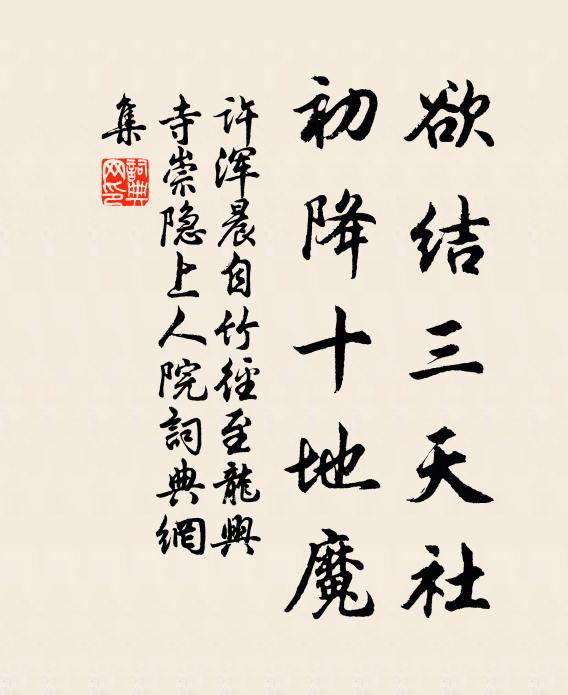 欲结三天社
初降十地魔
许浑晨自竹徑至龍興
寺崇隐上人院詞典網
集
詞典
网印